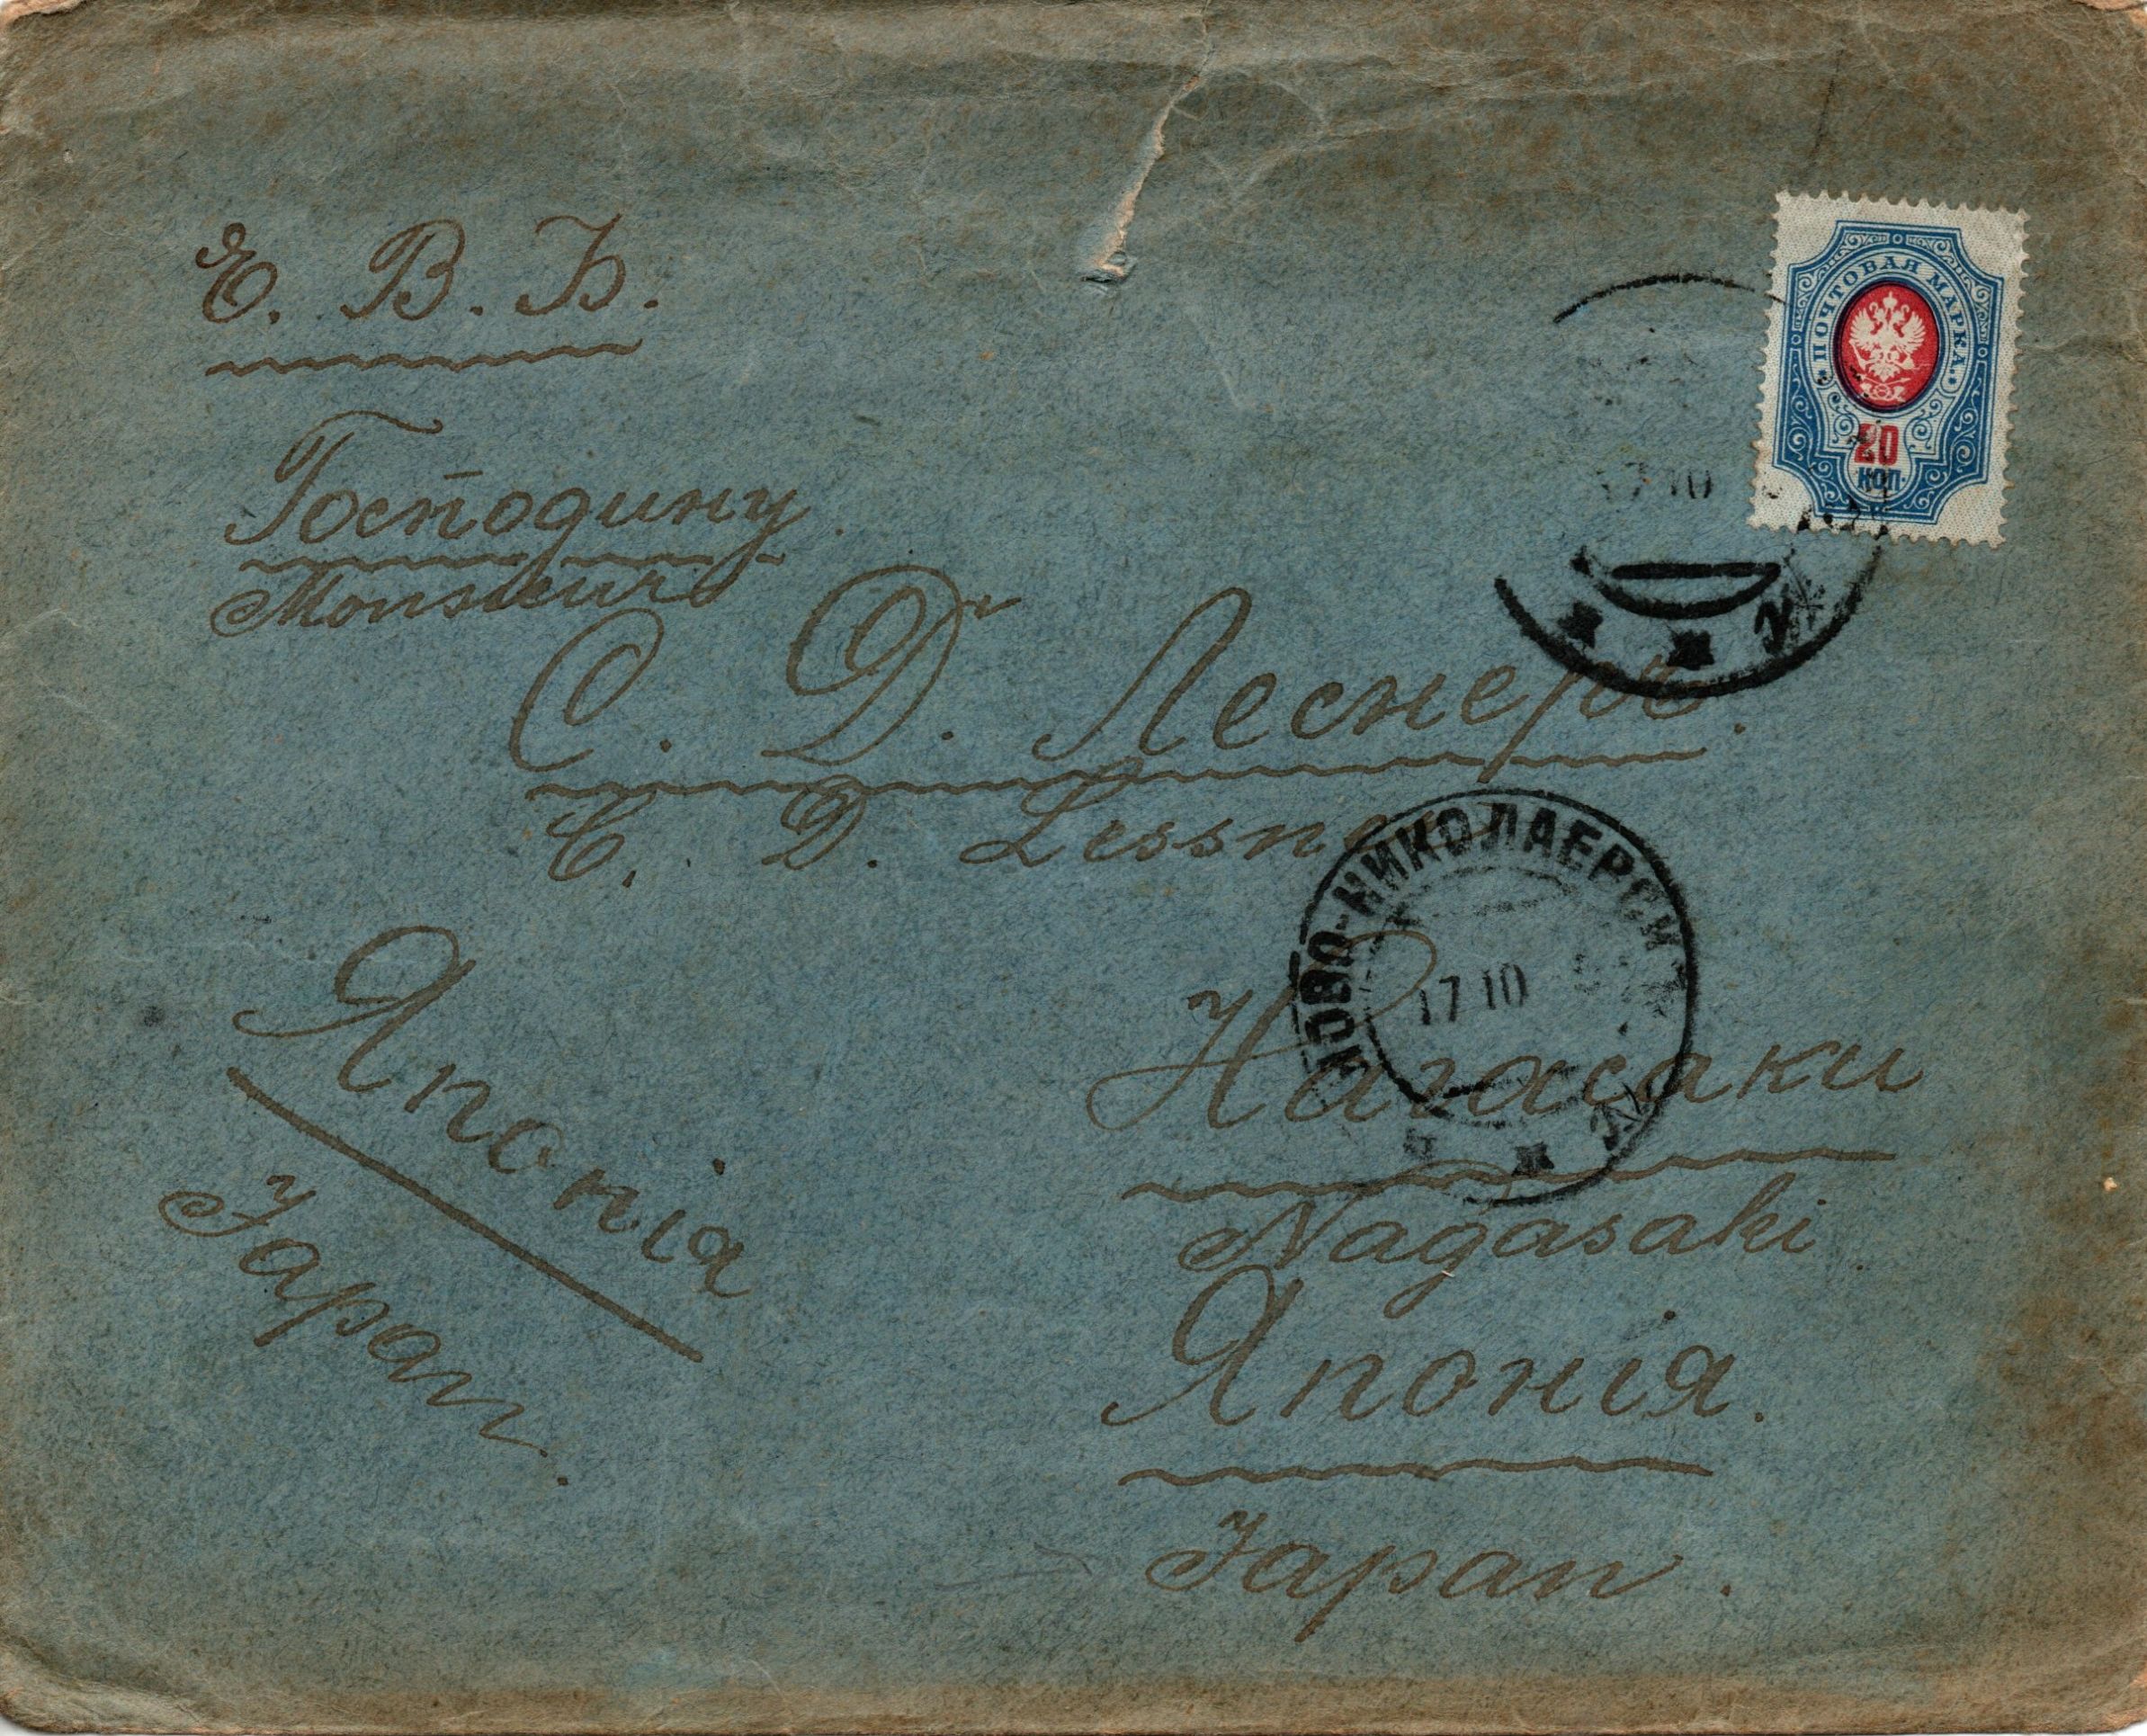 Е. В. Б.
ПОЧТОВАЯ МАРКА
20
КОП.
17 10
Господину
Monsieur
С. Д. Леснеръ.
C. D. Lessner
НОВО-НИКОЛАЕВСК
17 10
Японія
Japan.
Нагасаки
Nagasaki
Японія.
Japan.